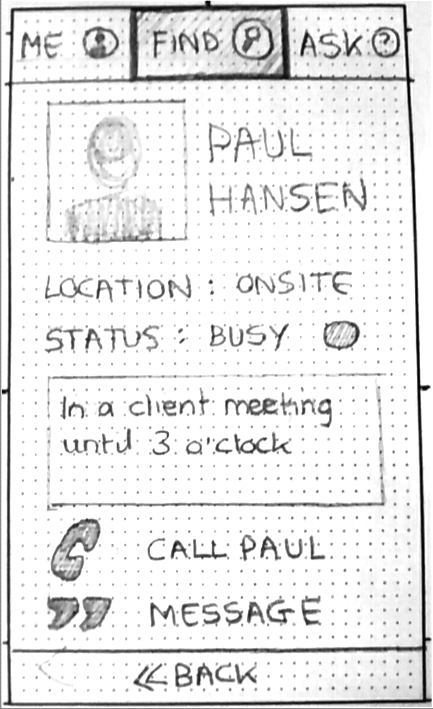 ME FIND ASK ?
PAUL
HANSEN
LOCATION : ONSITE
STATUS : BUSY
In a client meeting
until 3 o'clock
CALL PAUL
MESSAGE
<< BACK